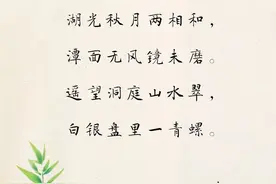 湖光秋月两相和，
潭面无风镜未磨。
遥望洞庭山水翠，
白银盘里一青螺。